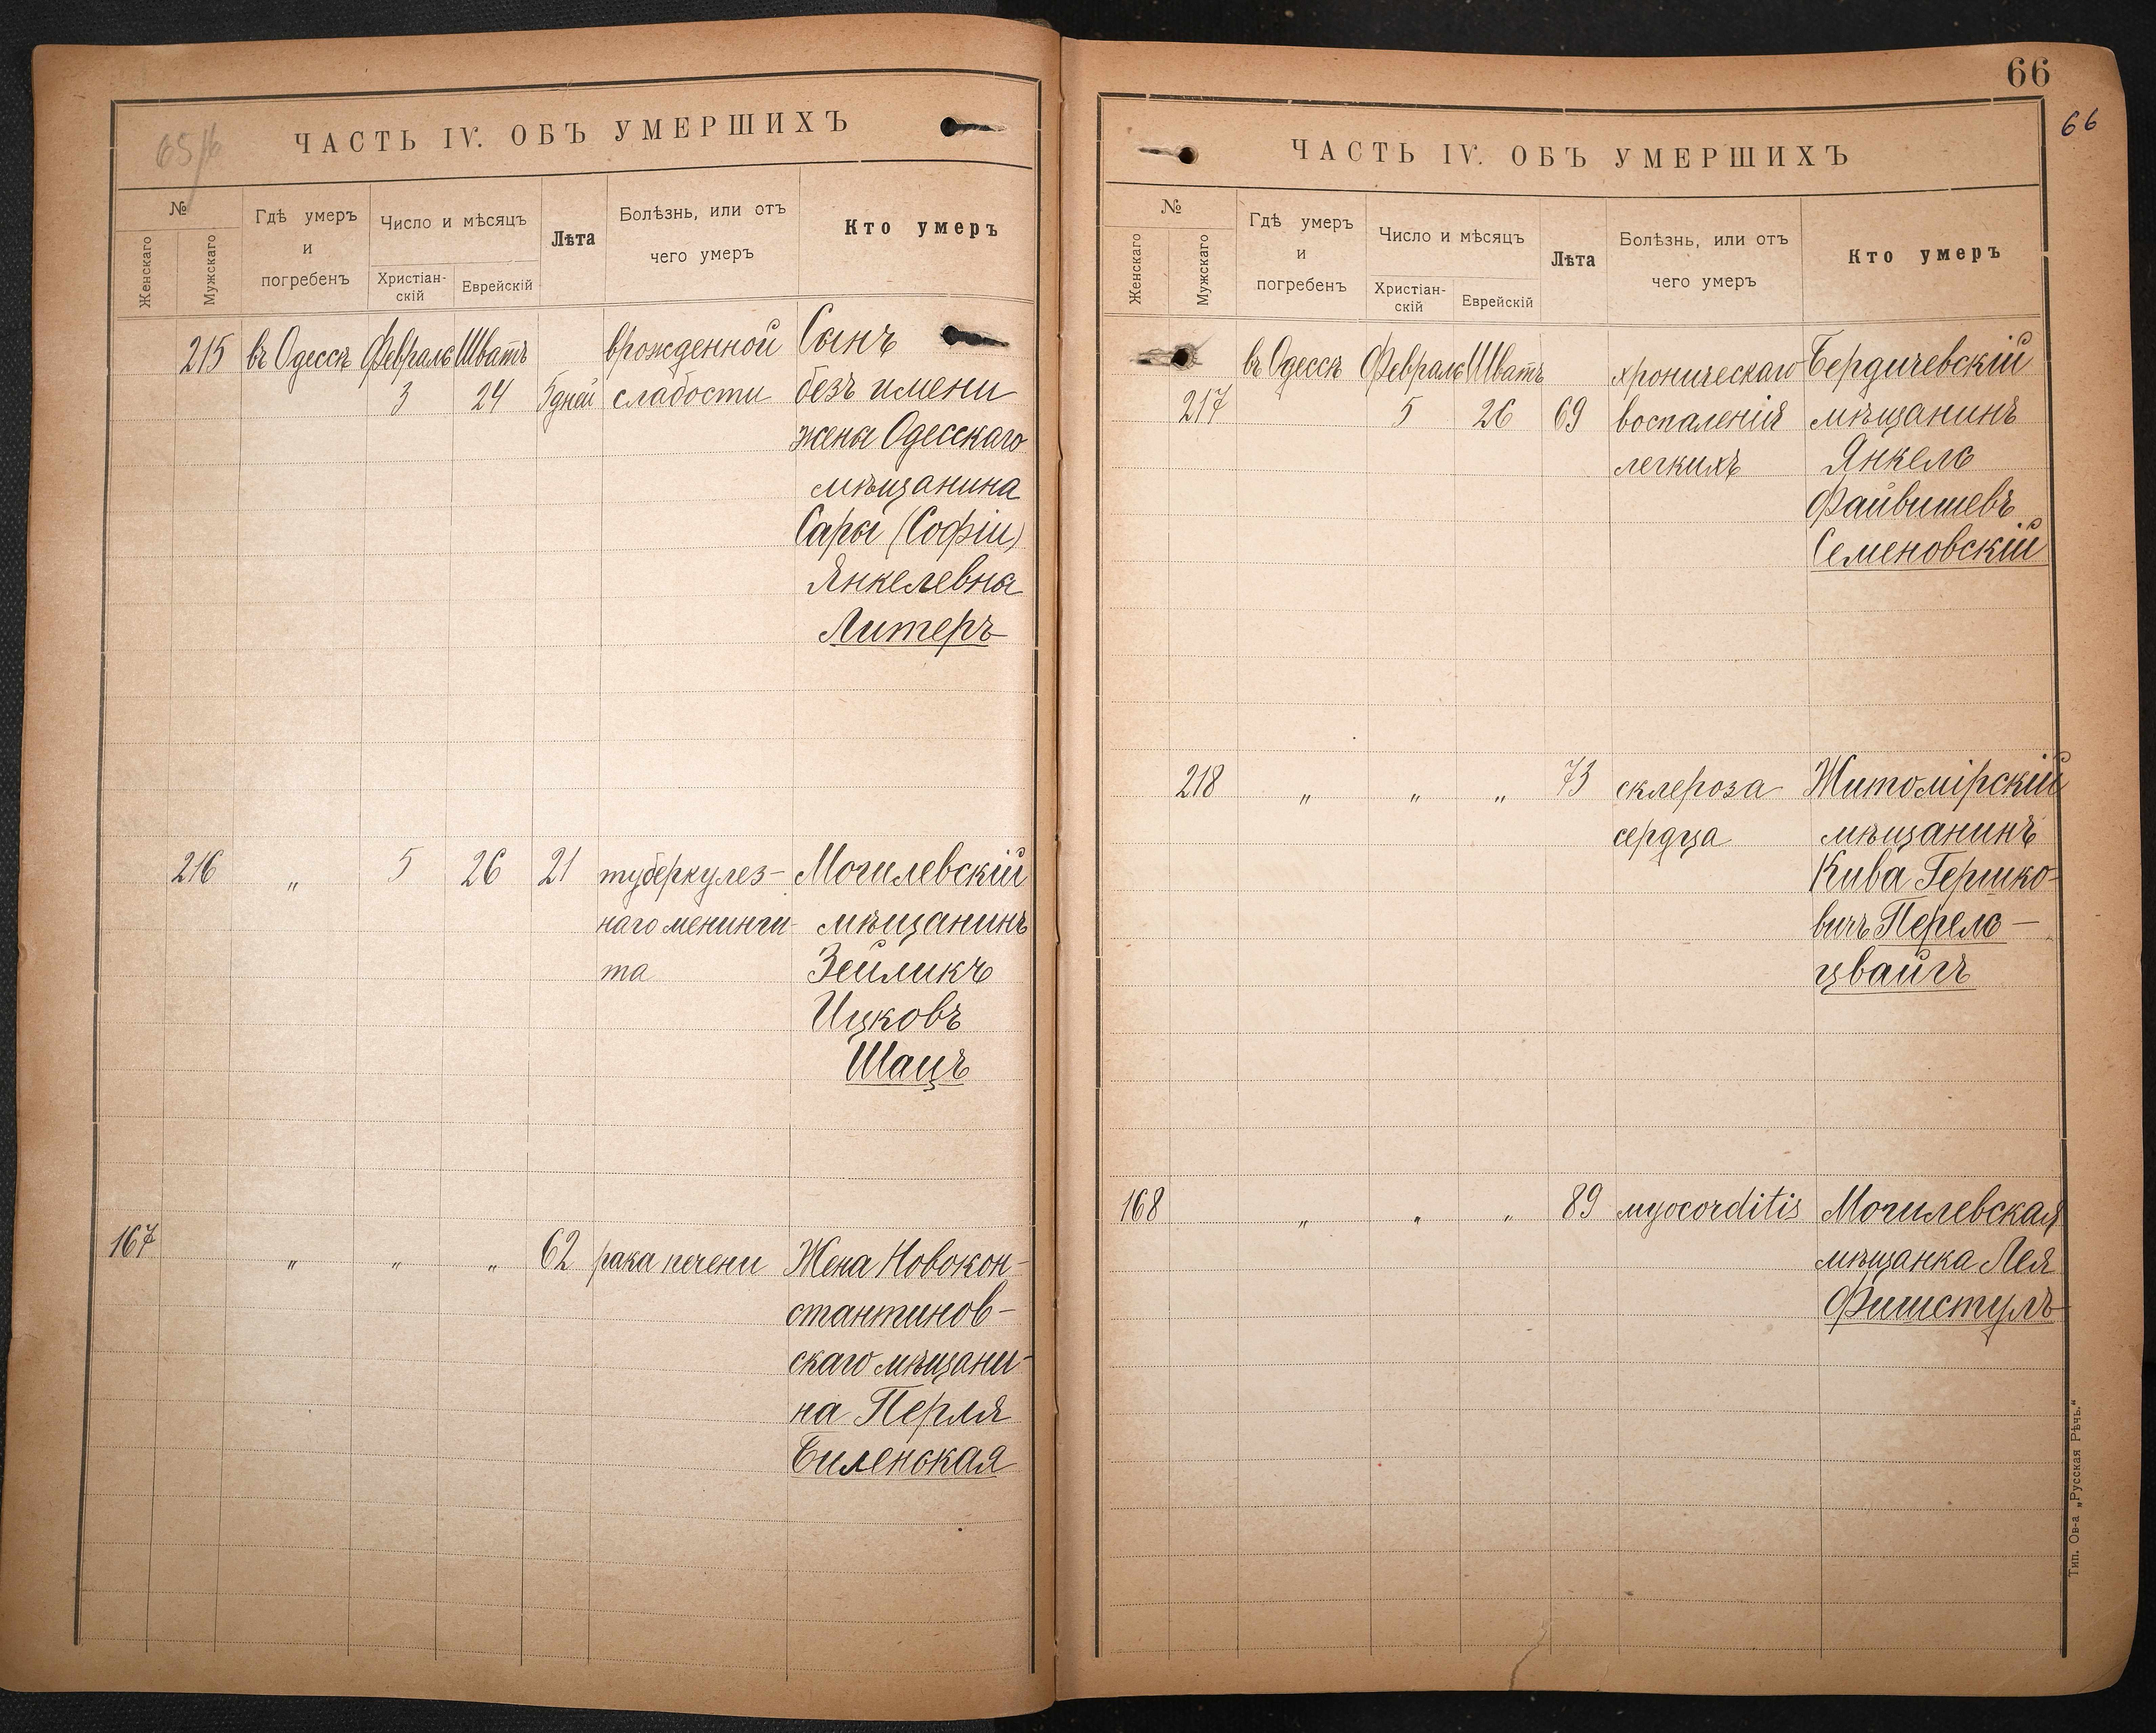 65/6
ЧАСТЬ IV. ОБЪ УМЕРШИХЪ
№
Женскаго
Мужскаго
Гдѣ умеръ
и
погребенъ
Число и мѣсяцъ
Христіан-
скій
Еврейскій
Лѣта
Болѣзнь, или отъ
чего умеръ
Кто умеръ
215 въ Одессѣ Февраль Шватъ врожденной Сынъ
3 24 5 дней слабости безъ имени
жены Одесскаго
мѣщанина
Сары (Софіи)
Янкелевна
Литеръ
216 „ 5 26 21 туберкулез- Могилевскій
наго менинги- мѣщанинъ
та Зейликъ
Ицковъ
Шацъ
167 „ „ „ 62 рака печени Жена Новокон-
стантинов-
скаго мѣщани-
на Перля
Биленская
66
66
ЧАСТЬ IV. ОБЪ УМЕРШИХЪ
№
Женскаго
Мужскаго
Гдѣ умеръ
и
погребенъ
Число и мѣсяцъ
Христіан-
скій
Еврейскій
Лѣта
Болѣзнь, или отъ
чего умеръ
Кто умеръ
въ Одессѣ Февраль Шватъ хроническаго Бердичевскій
217 5 26 69 воспаленія мѣщанинъ
легкихъ Янкель
Файвишевъ
Семеновскій
218 „ „ „ 73 склероза Житомірскій
сердца мѣщанинъ
Кива Гершко-
вичъ Перель-
цвайгъ
168 „ „ „ 89 myocorditis Могилевская
мѣщанка Лея
Фишстулъ
Тип. Ов-а „Русская Рѣчь."